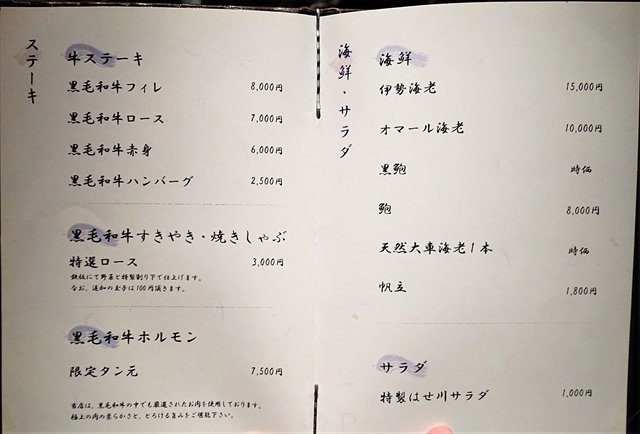 ステーキ
牛ステーキ
黒毛和牛フィレ 8,000円
黒毛和牛ロース 7,000円
黒毛和牛赤身 6,000円
黒毛和牛ハンバーグ 2,500円
黒毛和牛すきやき・焼きしゃぶ
特選ロース 3,000円
鉄板にて野菜と特製割り下で仕上げます。
なお、追加の玉子は100円頂きます。
黒毛和牛ホルモン
限定タン元 7,500円
当店は、黒毛和牛の中でも厳選されたお肉を使用しております。
極上の肉の柔らかさと、とろける旨みをご堪能下さい。
海鮮・サラダ
海鮮
伊勢海老 15,000円
オマール海老 10,000円
黒鮑 時価
鮑 8,000円
天然大車海老1本 時価
帆立 1,800円
サラダ
特製はせ川サラダ 1,000円